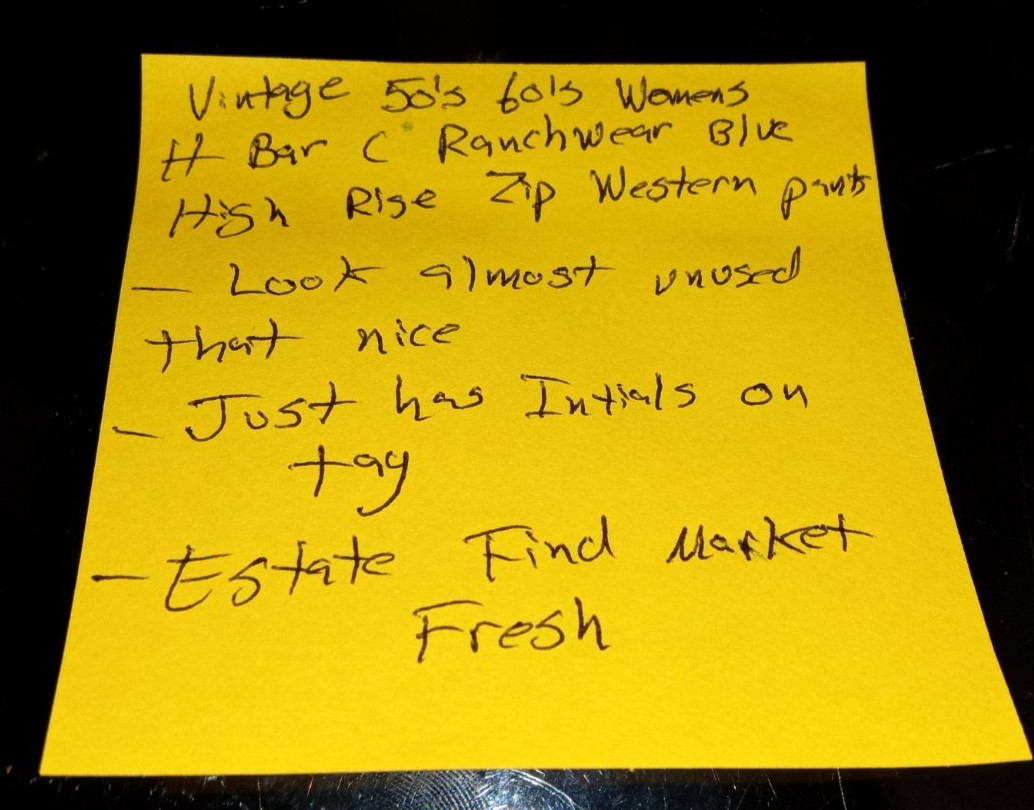 Vintage 50's 60's Womens
H Bar C Ranchwear Blue
High Rise Zip Western pants
- Look almost unused
that nice
- Just has Intials on
tag
- Estate Find Market
Fresh